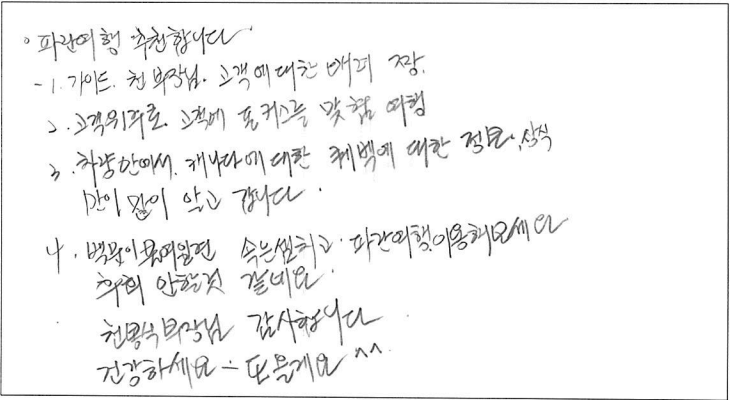 ◦ 파란여행 추천합니다
- 1. 가이드. 천 부장님. 고객에 대한 배려 짱.
2. 고객위주로 고객에 포커스를 맞춤 여행
3. 차량안에서. 캐나다에 대한 퀘벡에 대한 정보, 상식
많이 알고 갑니다.
4. 백문이 속는셈치고. 파란여행 이용해보세요
후회 안할것 같네요.
부장님 감사합니다
건강하세요 - 또 올게요 ^^